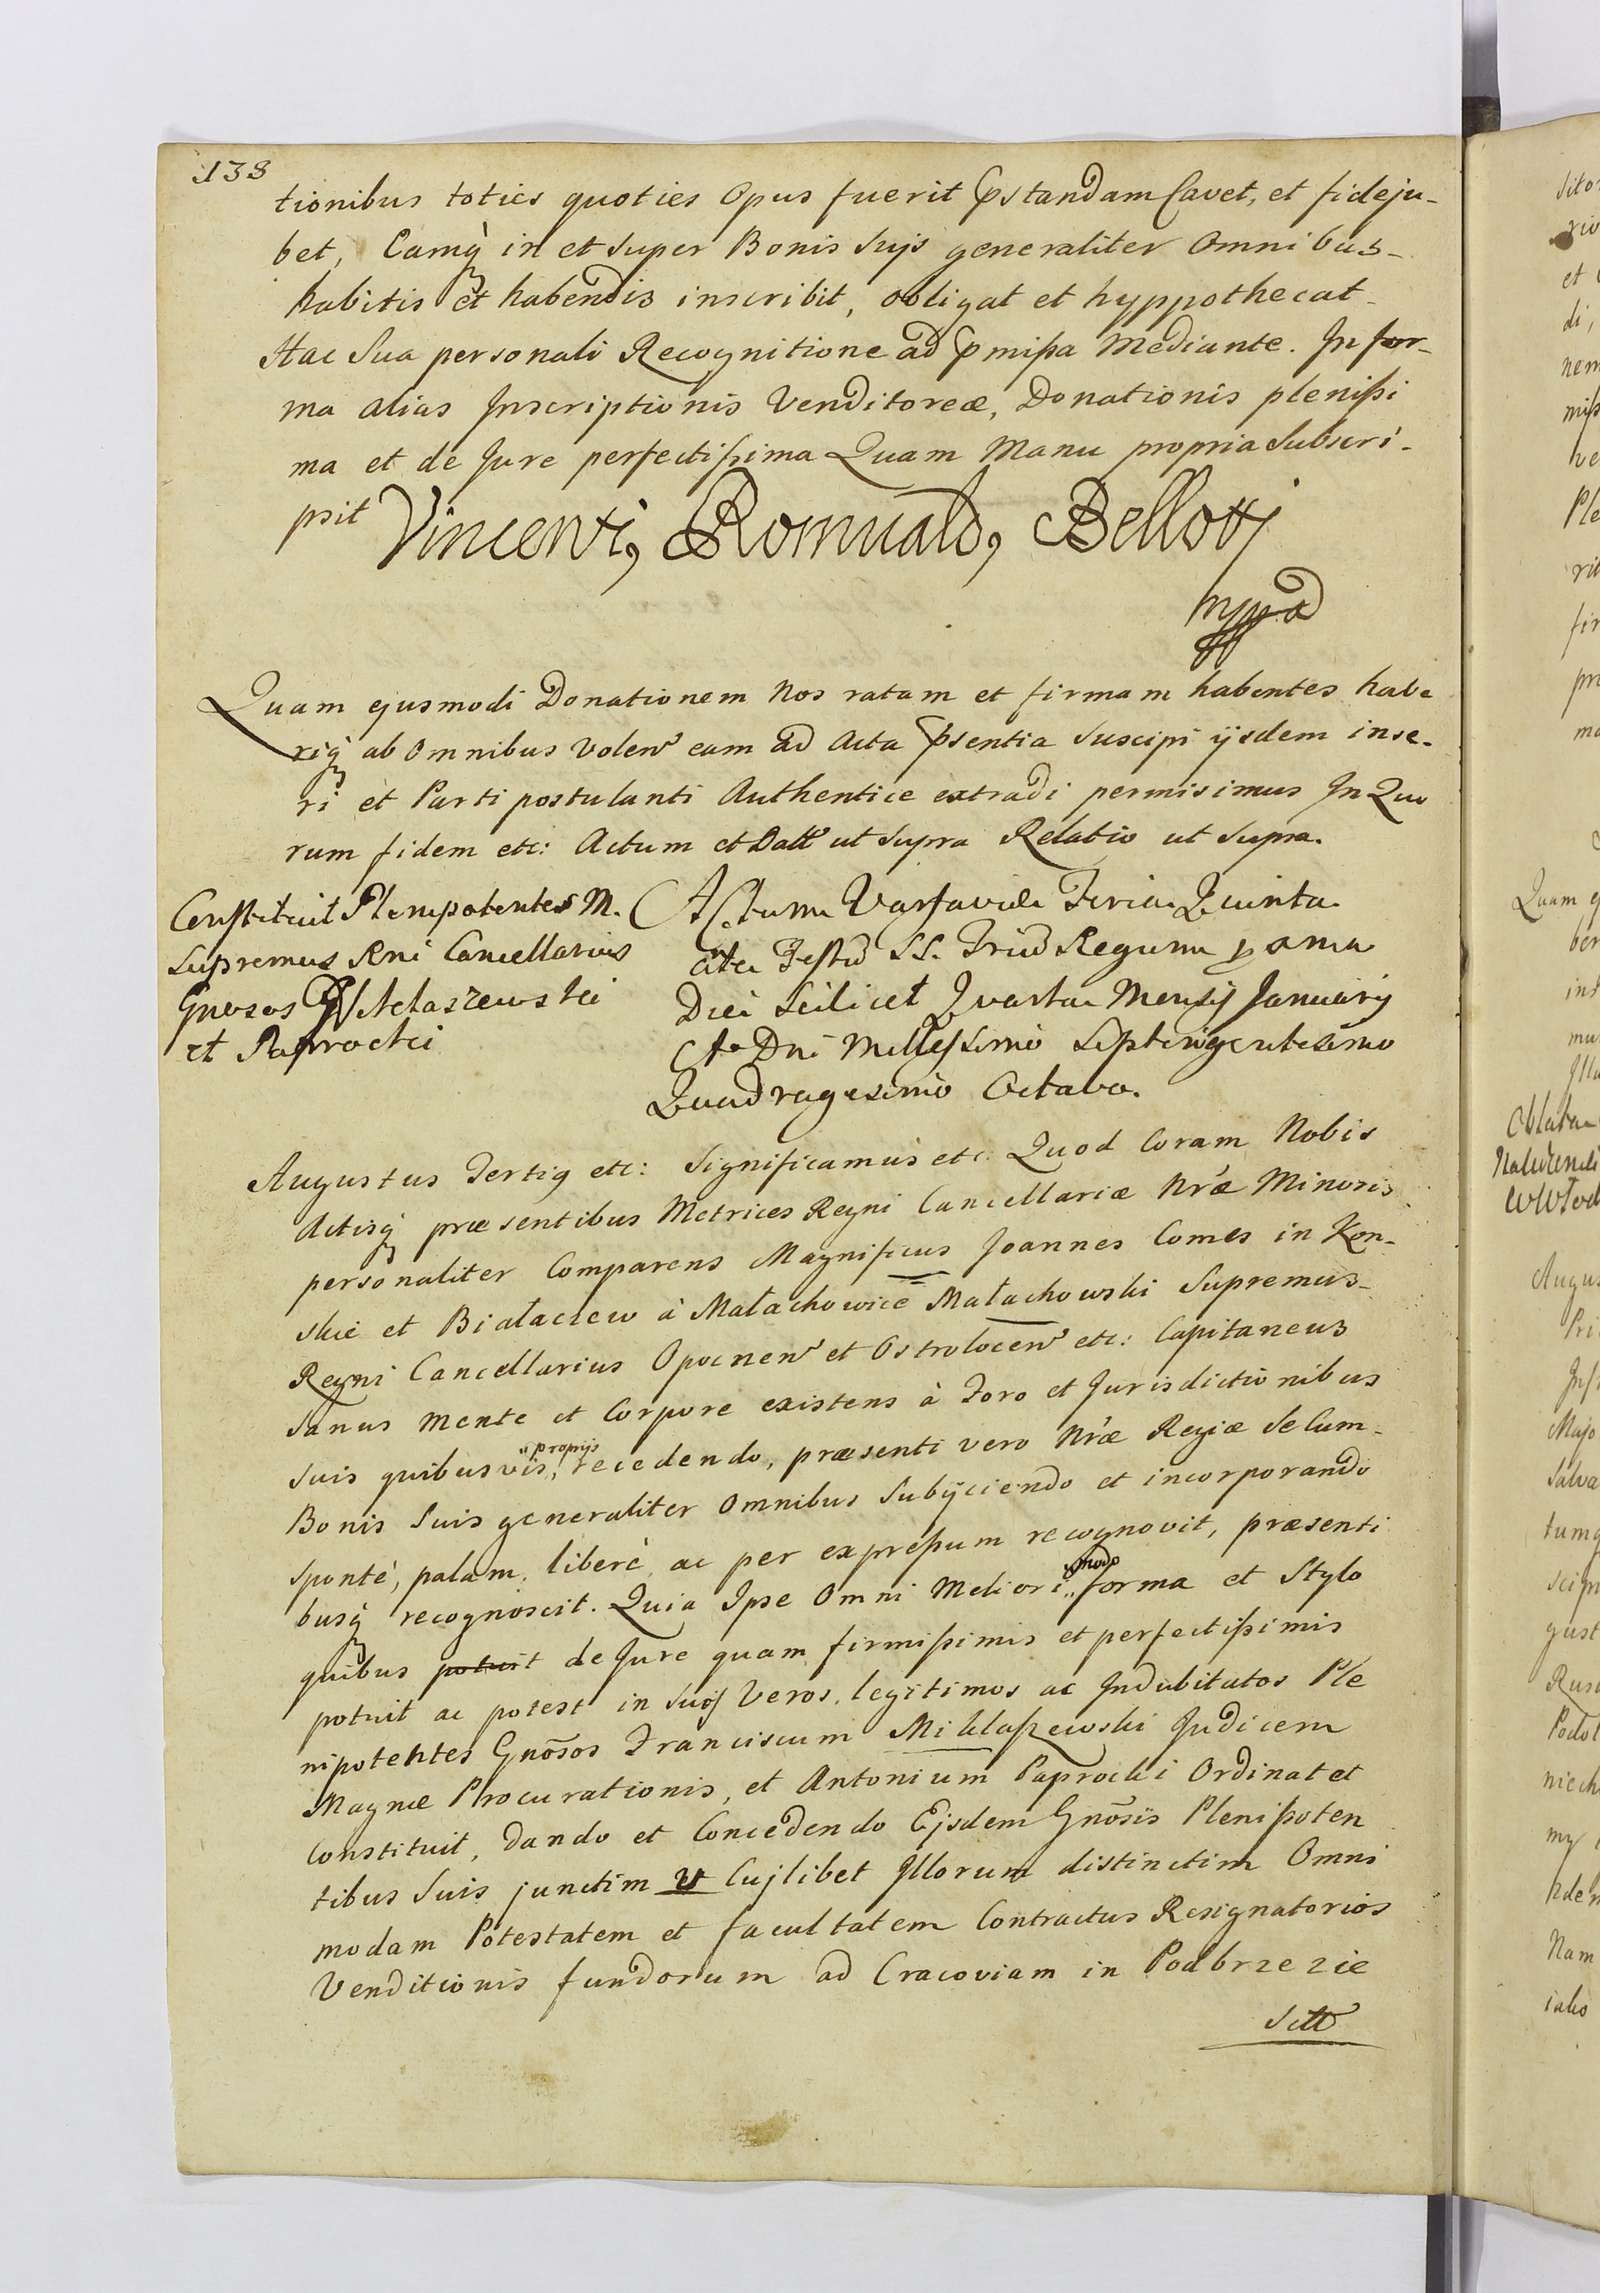 138
tionibus toties quoties Opus fuerit pstandam Cavet, et fideju-
bet, Eamq in et super Bonis Suis generaliter Omnibus-
habitis et habendis inscribit, obligat et hyppothecat-
Hac Sua personali Recognitione ad pmißa Mediante. In for-
ma alias Inscriptionis Venditoreæ, Donationis plenißi
ma et de Jure perfectißima Quam Manu propria Subscri-
psit Vincenti9 Romuald9 Bellotti
mppa
Quam ejusmodi Donationem Nos ratam et firmam habentes habe
riq ab Omnibus Volen eam ad Acta psentia Suscipi ijsdem inse-
ri et Parti postulanti Authentice extradi permisimus In Quo
rum fidem etc: Actum et Datt ut supra Relatio ut supra.
Constituit Plenipotentes M.
Supremus Rni Cancellarius
Gnosos Miklaszewski
et Paprocki
Actum Varsaviæ Feria Quinta
ante Festu SS. Triu Regum pxma
Die Scilicet Quarta Mensis January
Ao Dni Millessimo Septingentesimo
Quadragesimo Octavo.
Augustus Tertiq etc: Significamus etc. Quod Coram Nobis
Actisq præsentibus Metrices Regni Cancellariæ Nræ Minoris
personaliter Comparens Magnificus Joannes Comes in Kon-
skie et Białaczew à Małachowice Małachowski Supremus-
Regni Cancellarius Opocnen et Ostrolocen etc: Capitaneus
Sanus mente et Corpore existens à Foro et Jurisdictionibus
suis quibusvis, propriis recedendo, præsenti vero Nræ Regiæ se Cum-
Bonis Suis generaliter Omnibus Subijciendo et incorporando
sponté, palam, liberé, ac per expreßum recognovit, præsenti
busq recognoscit. Quia Ipse Omni Meliori modo forma et Stylo
quibus potuit de Jure quam firmißimis et perfectißimis
potuit ac potest in suos Veros, legitimos ac Indubitatos Ple
nipotentes Gnosos Franciscum Miklaßzewski Judicem
Magnæ Procurationis, et Antonium Paprocki Ordinat et
Constituit, dando et Concedendo Ejsdem Gnosis Plenipoten
tibus Suis junctim v Cujlibet Illorum distinctim Omni
modam Potestatem et facultatem Contractus Resignatorios
Venditionis fundorum ad Cracoviam in Podbrzezie